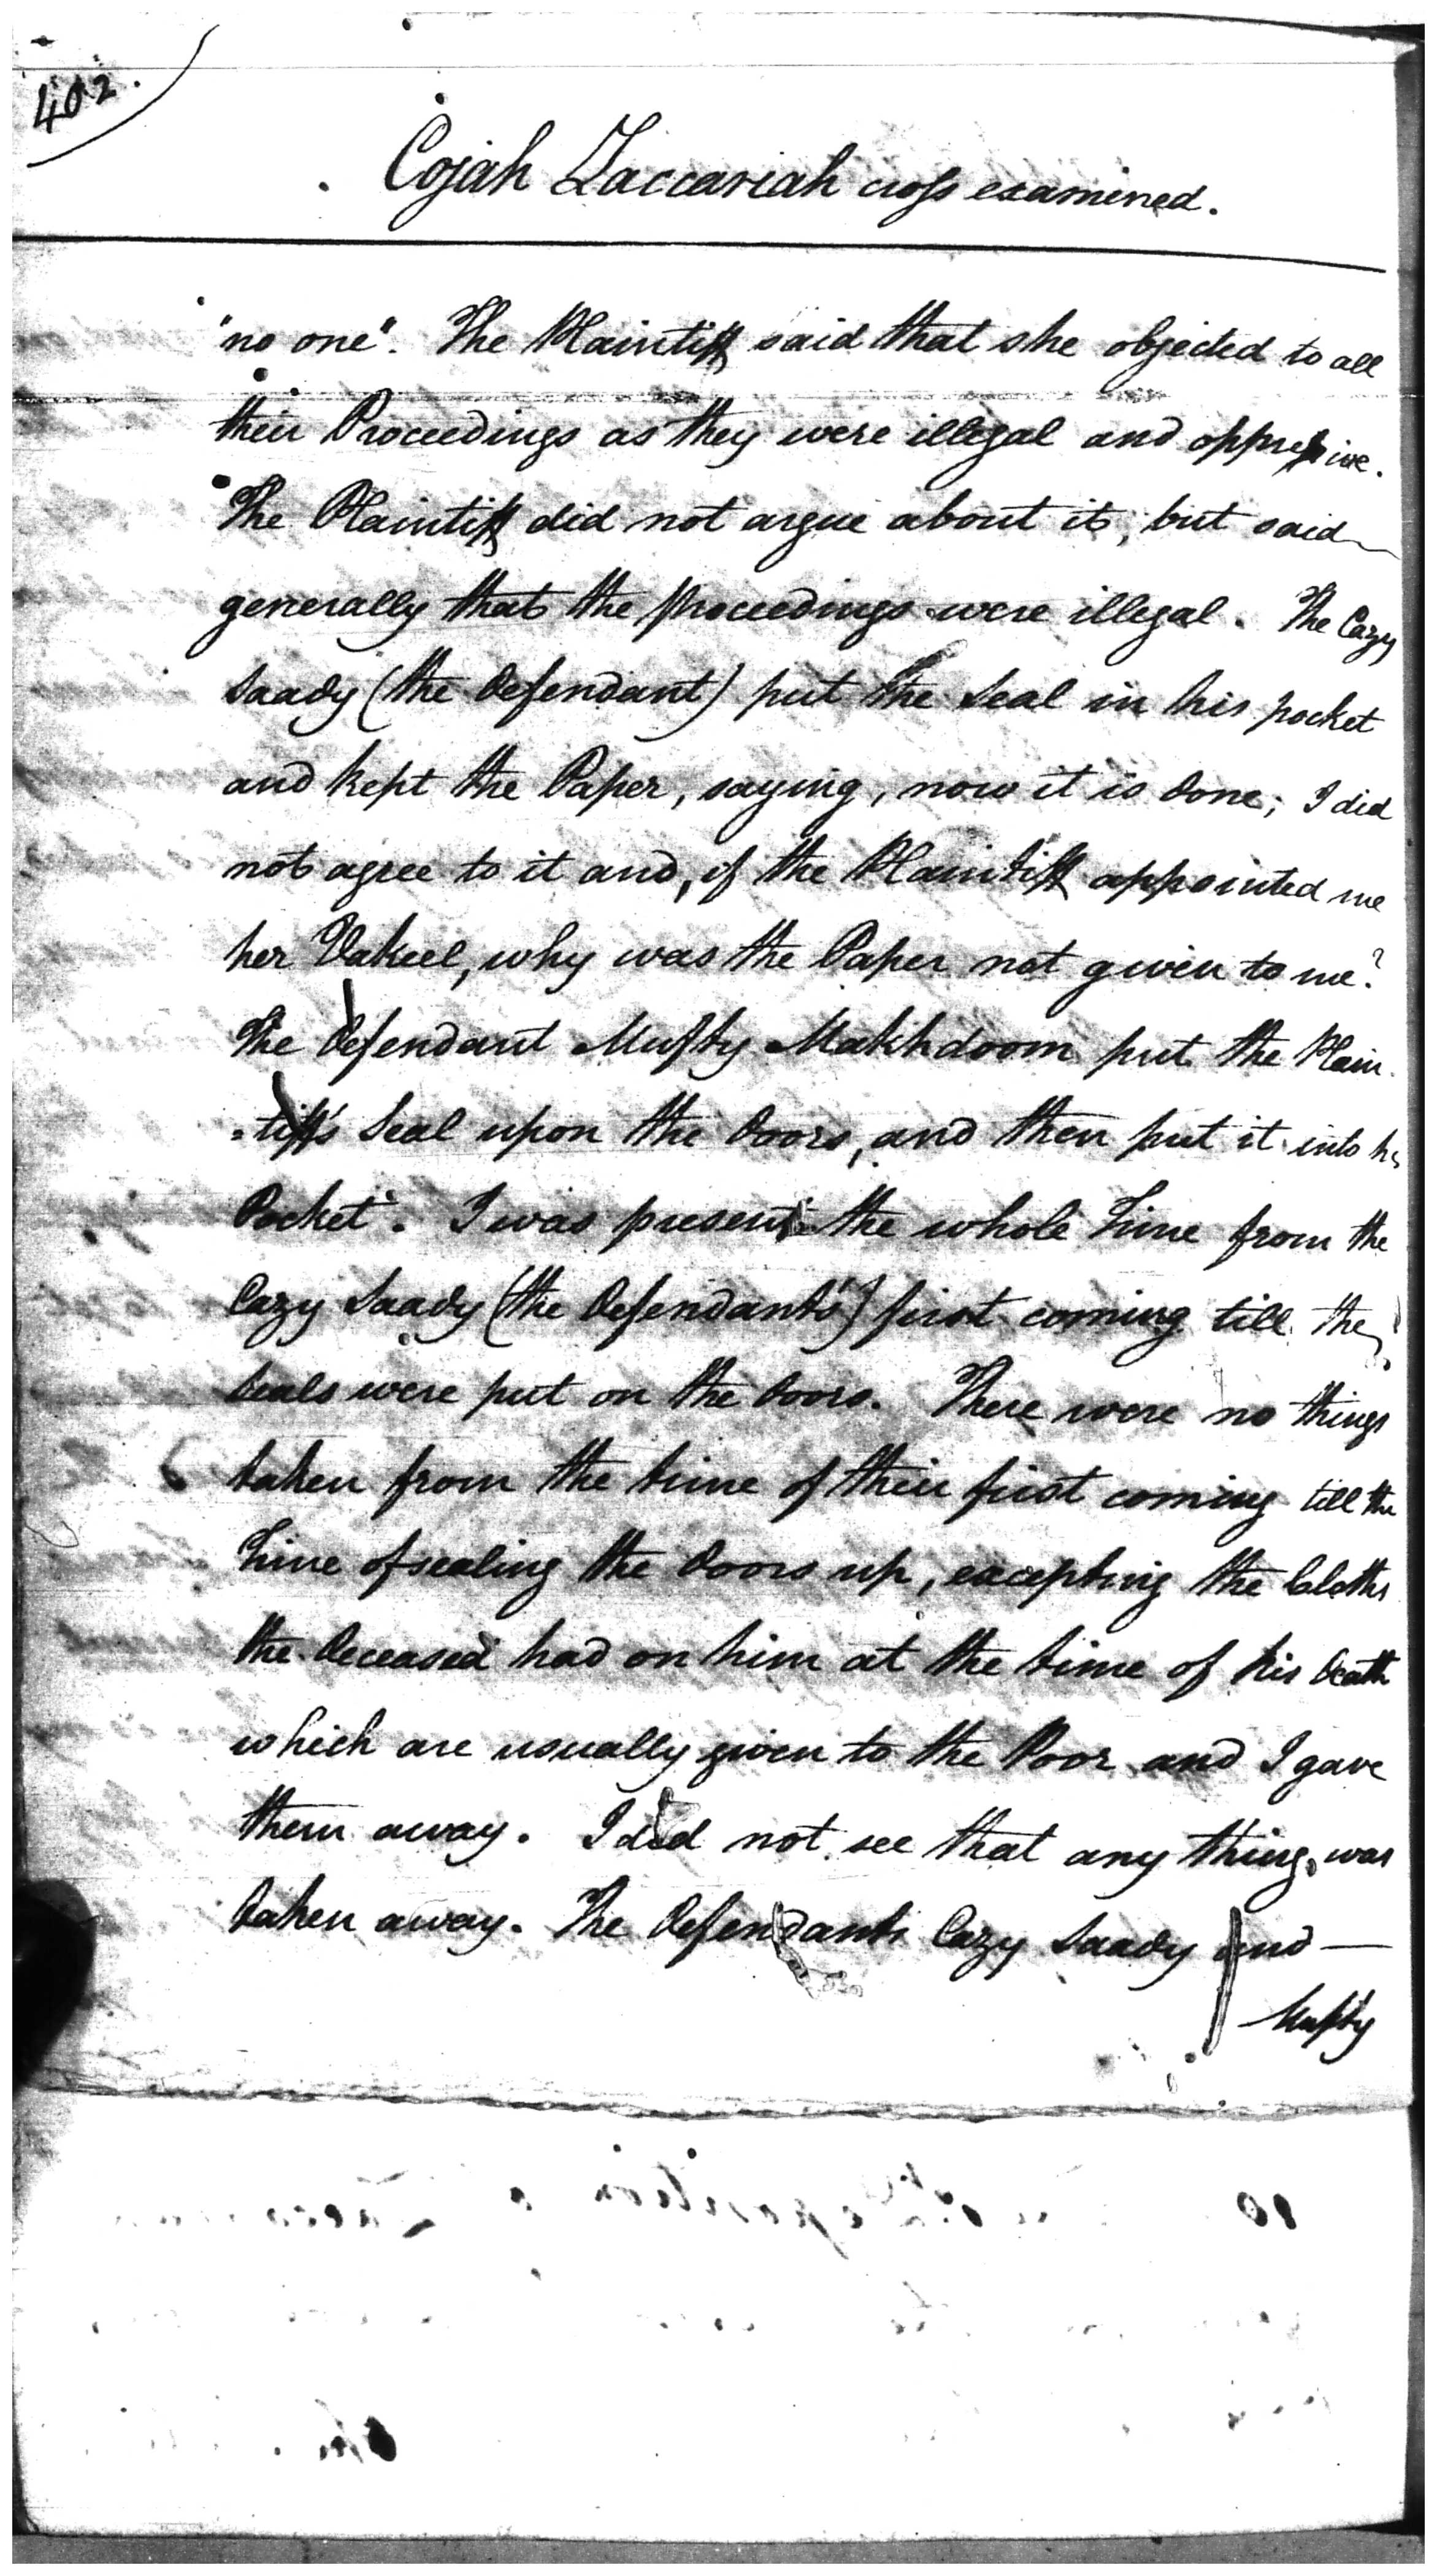 402.
Cojah Zaccariah cross examined.
"no one". The Plaintiff said that she objected to all
their Proceedings as they were illegal and oppressive.
The Plaintiff did not argue about it, but said
generally that the proceedings were illegal. The Cazy
Saady (the Defendant) put the Seal in his pocket
and kept the Paper, saying, now it is done; I did
not agree to it and, if the Plaintiff appointed me
her Vakeel, why was the Paper not given to me?
The Defendant Mufty Makhdoom put the Plain
=tiff's Seal upon the Doors, and then put it into his
Pocket. I was present the whole Time from the
Cazy Saady (the Defendant's) first coming till the
Seals were put on the Doors. There were no things
taken from the time of their first coming till the
Time of sealing the Doors up, excepting the Cloths
the Deceased had on him at the time of his Death
which are usually given to the Poor and I gave
them away. I did not see that any thing was
taken away. The Defendants Cazy Saady and —
Mufty